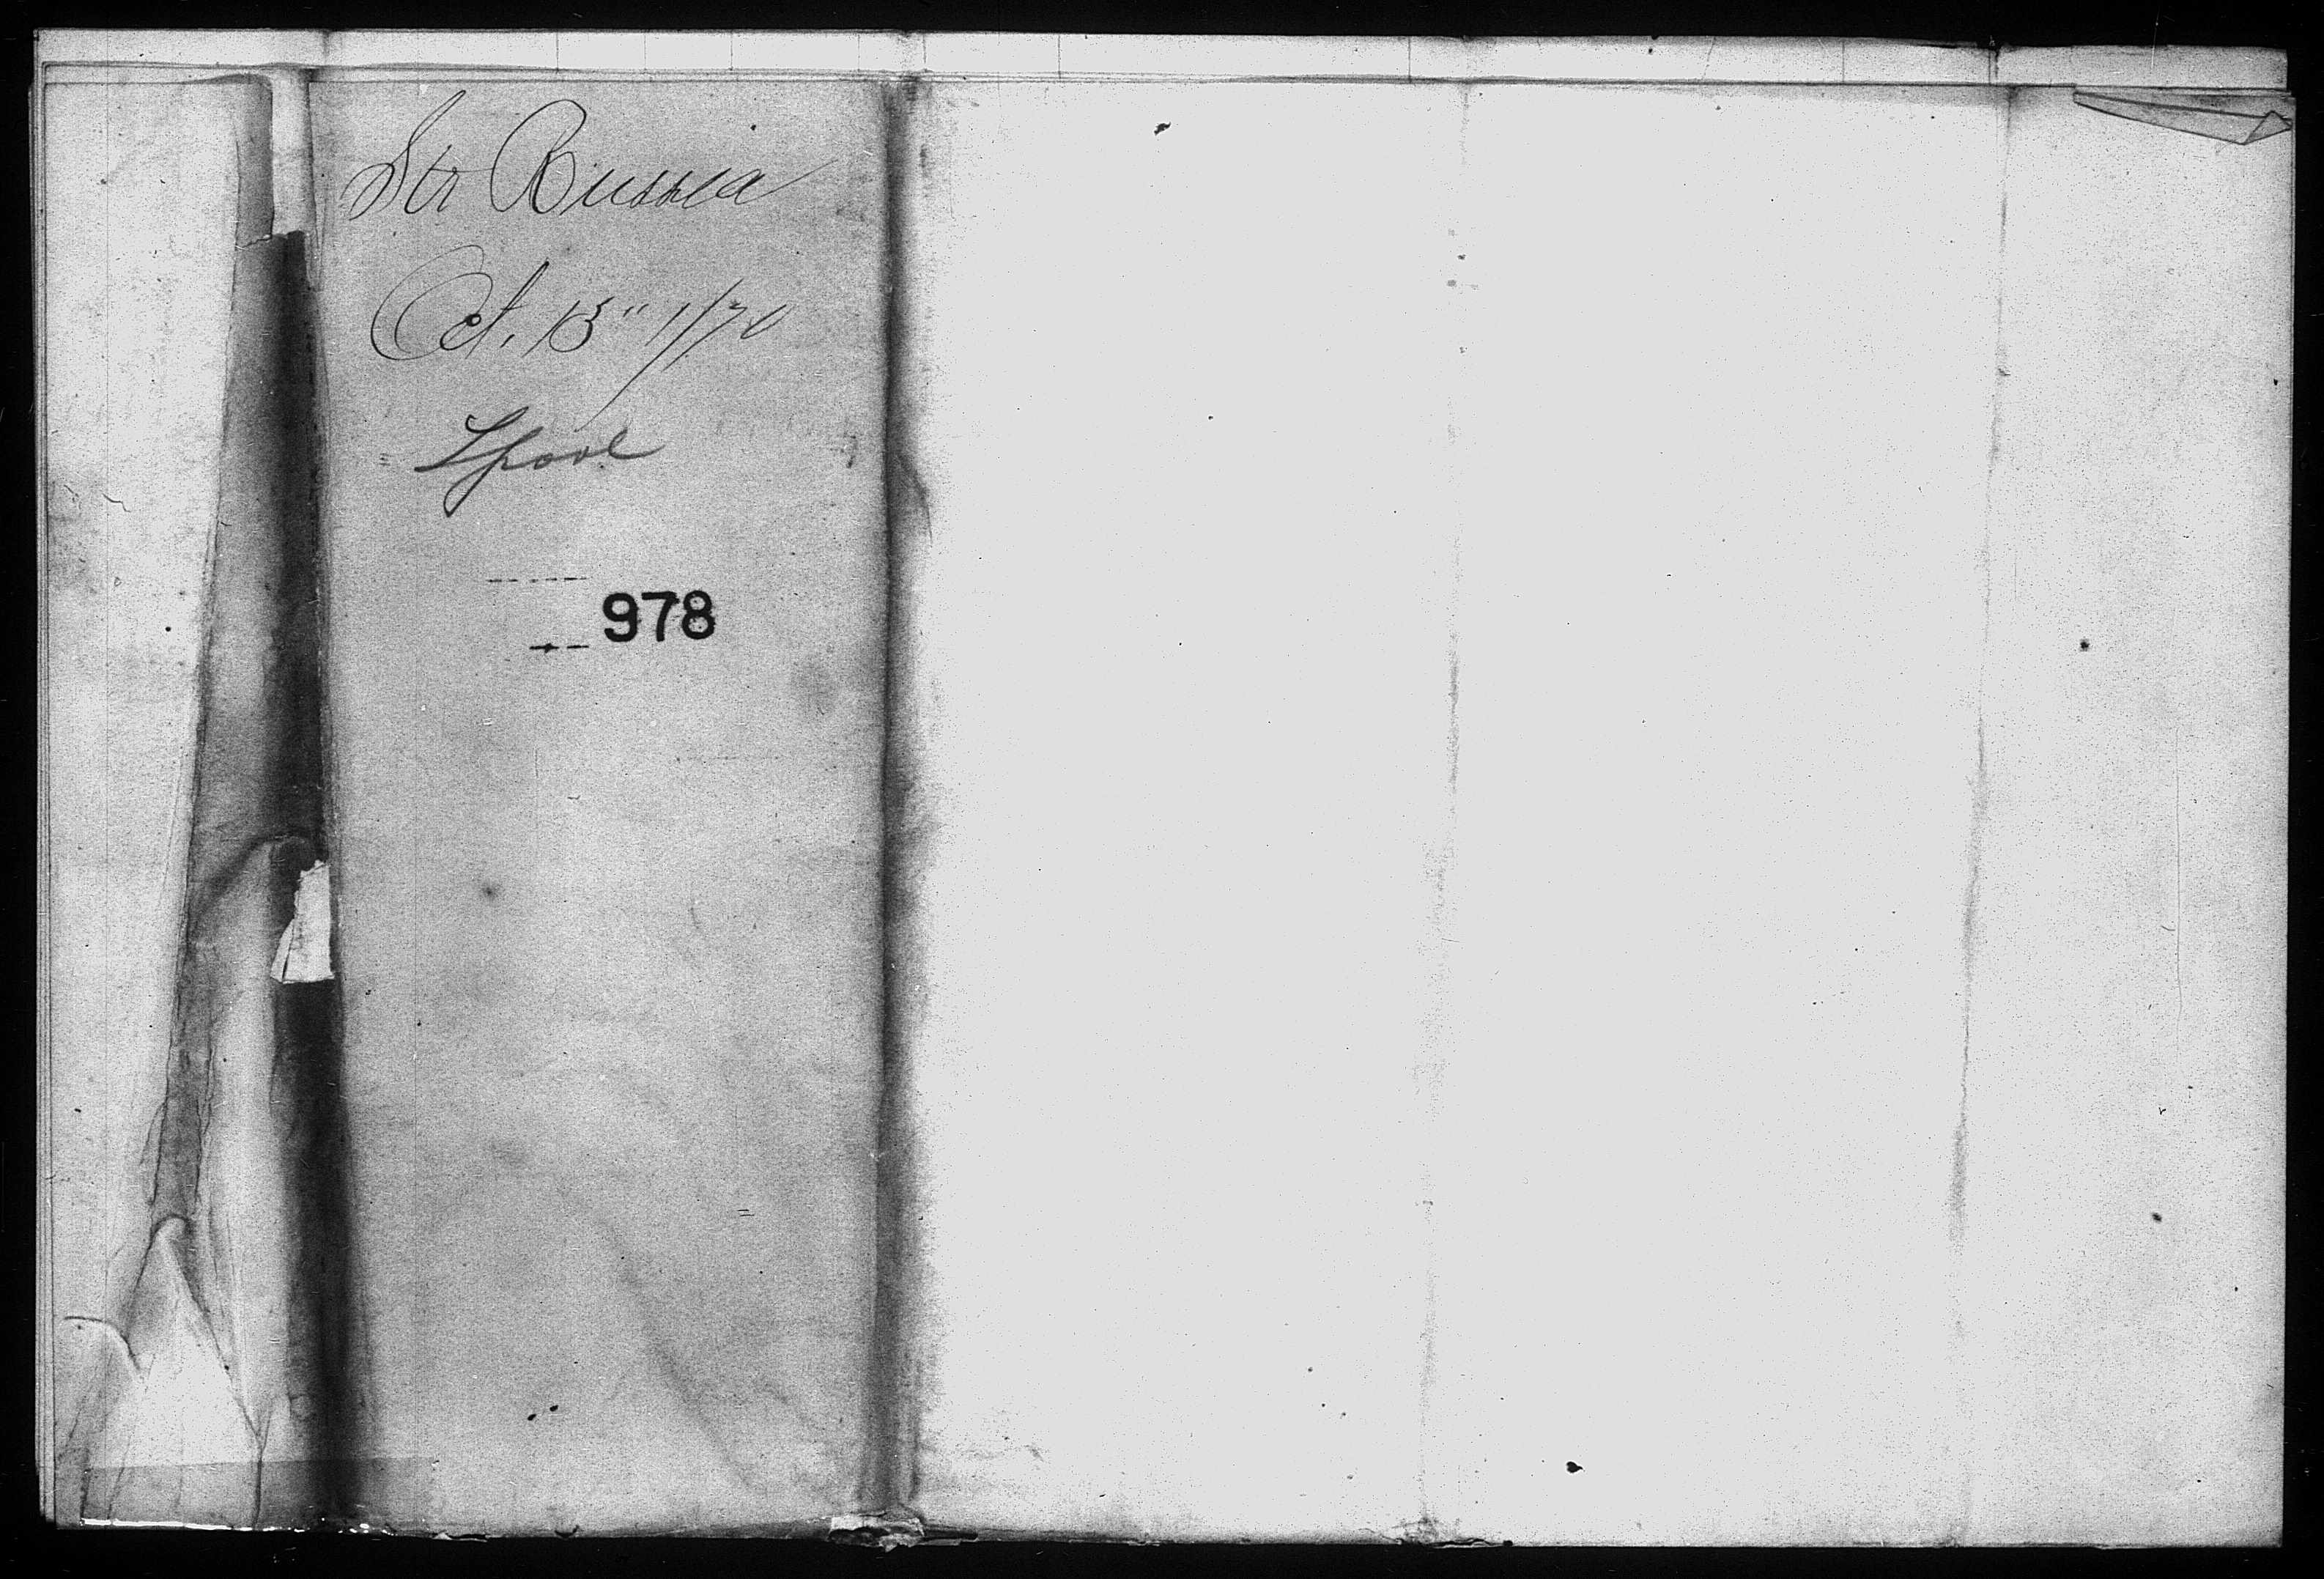 Str Russia
Oct. 13" 1/70
Lpool
978